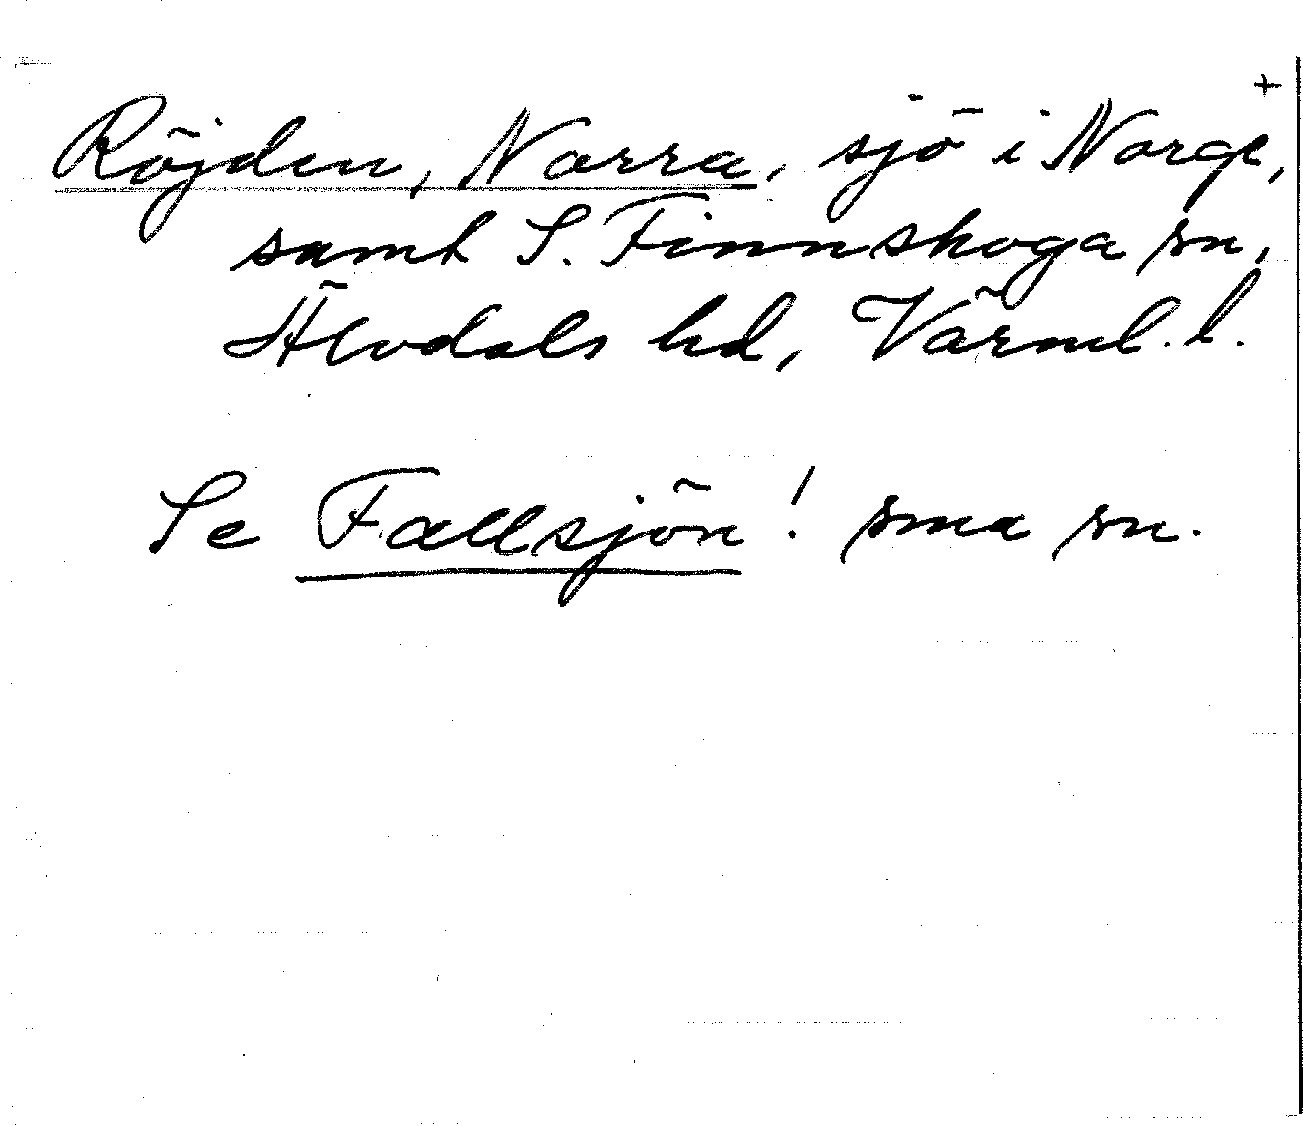 +
Röjden, Norra, sjö i Norge,
samt S. Finnskoga sn,
Älvdals hd, Värml. l.
Se Fallsjön! sma sn.